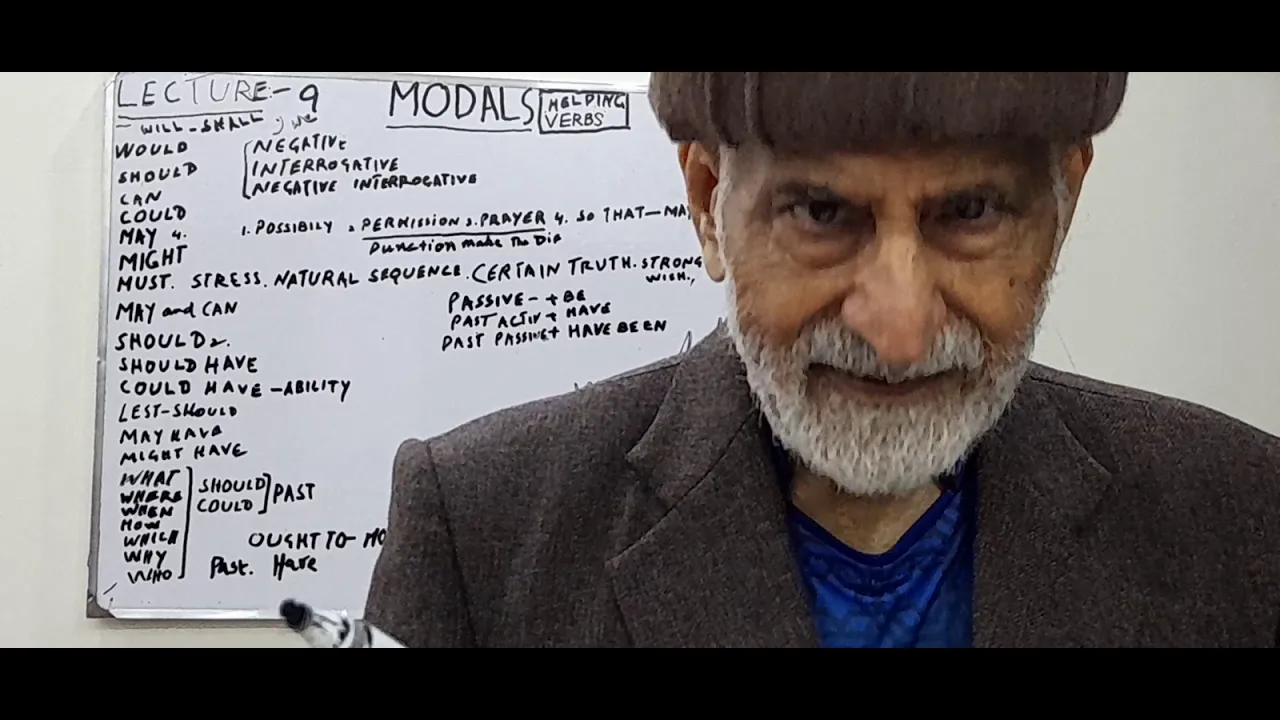 LECTURE-9
MODALS
HELPING
VERBS
WILL-SHALL
WOULD
SHOULD
CAN
COULD
MAY 4.
MIGHT
NEGATIVE
INTERROGATIVE
NEGATIVE INTERROGATIVE
1. POSSIBILY 2 PERMISSION 3. PRAYER 4. SO THAT-MA
make The Dif
MUST. STRESS. NATURAL SEQUENCE. CERTAIN TRUTH. STRONG
WISH.,
MAY and CAN
PASSIVE- + BE
PAST ACTIV + HAVE
PAST PASSIVE+ HAVE BEEN
SHOULD 2.
SHOULD HAVE
COULD HAVE -ABILITY
LEST-SHOULD
MAY HAVE
MIGHT HAVE
WHAT
WHERE
WHEN
HOW
WHICH
WHY
WHO
SHOULD
COULD
PAST
OUGHT TO- MO
Past. Have